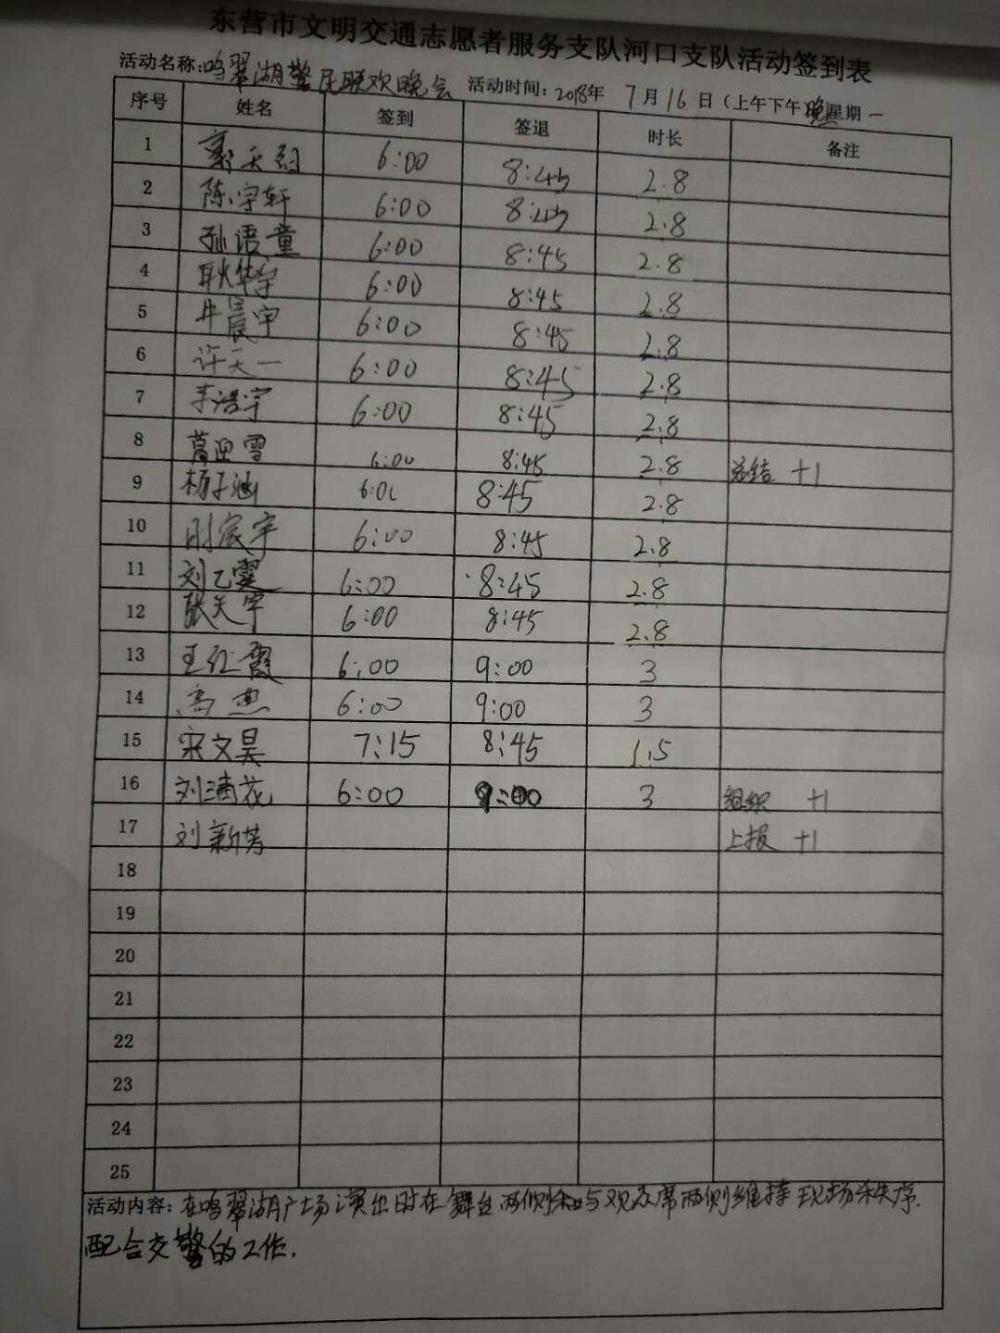 东营市文明交通志愿者服务支队河口支队活动签到表
活动名称:鸣翠湖警民联欢晚会 活动时间:2018年 7月16日(上午下午晚星期一
序号 姓名 签到 签退 时长 备注
1 郭天 6:00 8:45 2.8
2 陈宇轩 6:00 8:45 2.8
3 孙语童 6:00 8:45 2.8
4 耿华宇 6:00 8:45 2.8
5 牛晨宇 6:00 8:45 2.8
6 许天一 6:00 8:45 2.8
7 李浩宇 6:00 8:45 2.8
8 葛迎雪 6:00 8:45 2.8 总结 +1
9 杨子涵 6:00 8:45 2.8
10 宸宇 6:00 8:45 2.8
11 刘乙霆 6:00 8:45 2.8
12 张天宇 6:00 8:45 2.8
13 王红霞 6:00 9:00 3
14 高燕 6:00 9:00 3
15 宋文昊 7:15 8:45 1.5
16 刘清花 6:00 9:00 3 组织 +1
17 刘新芳 上报 +1
18
19
20
21
22
23
24
25
活动内容:在鸣翠湖广场演出时在舞台两侧和与观众席两侧维持现场秩序.
配合交警的工作.